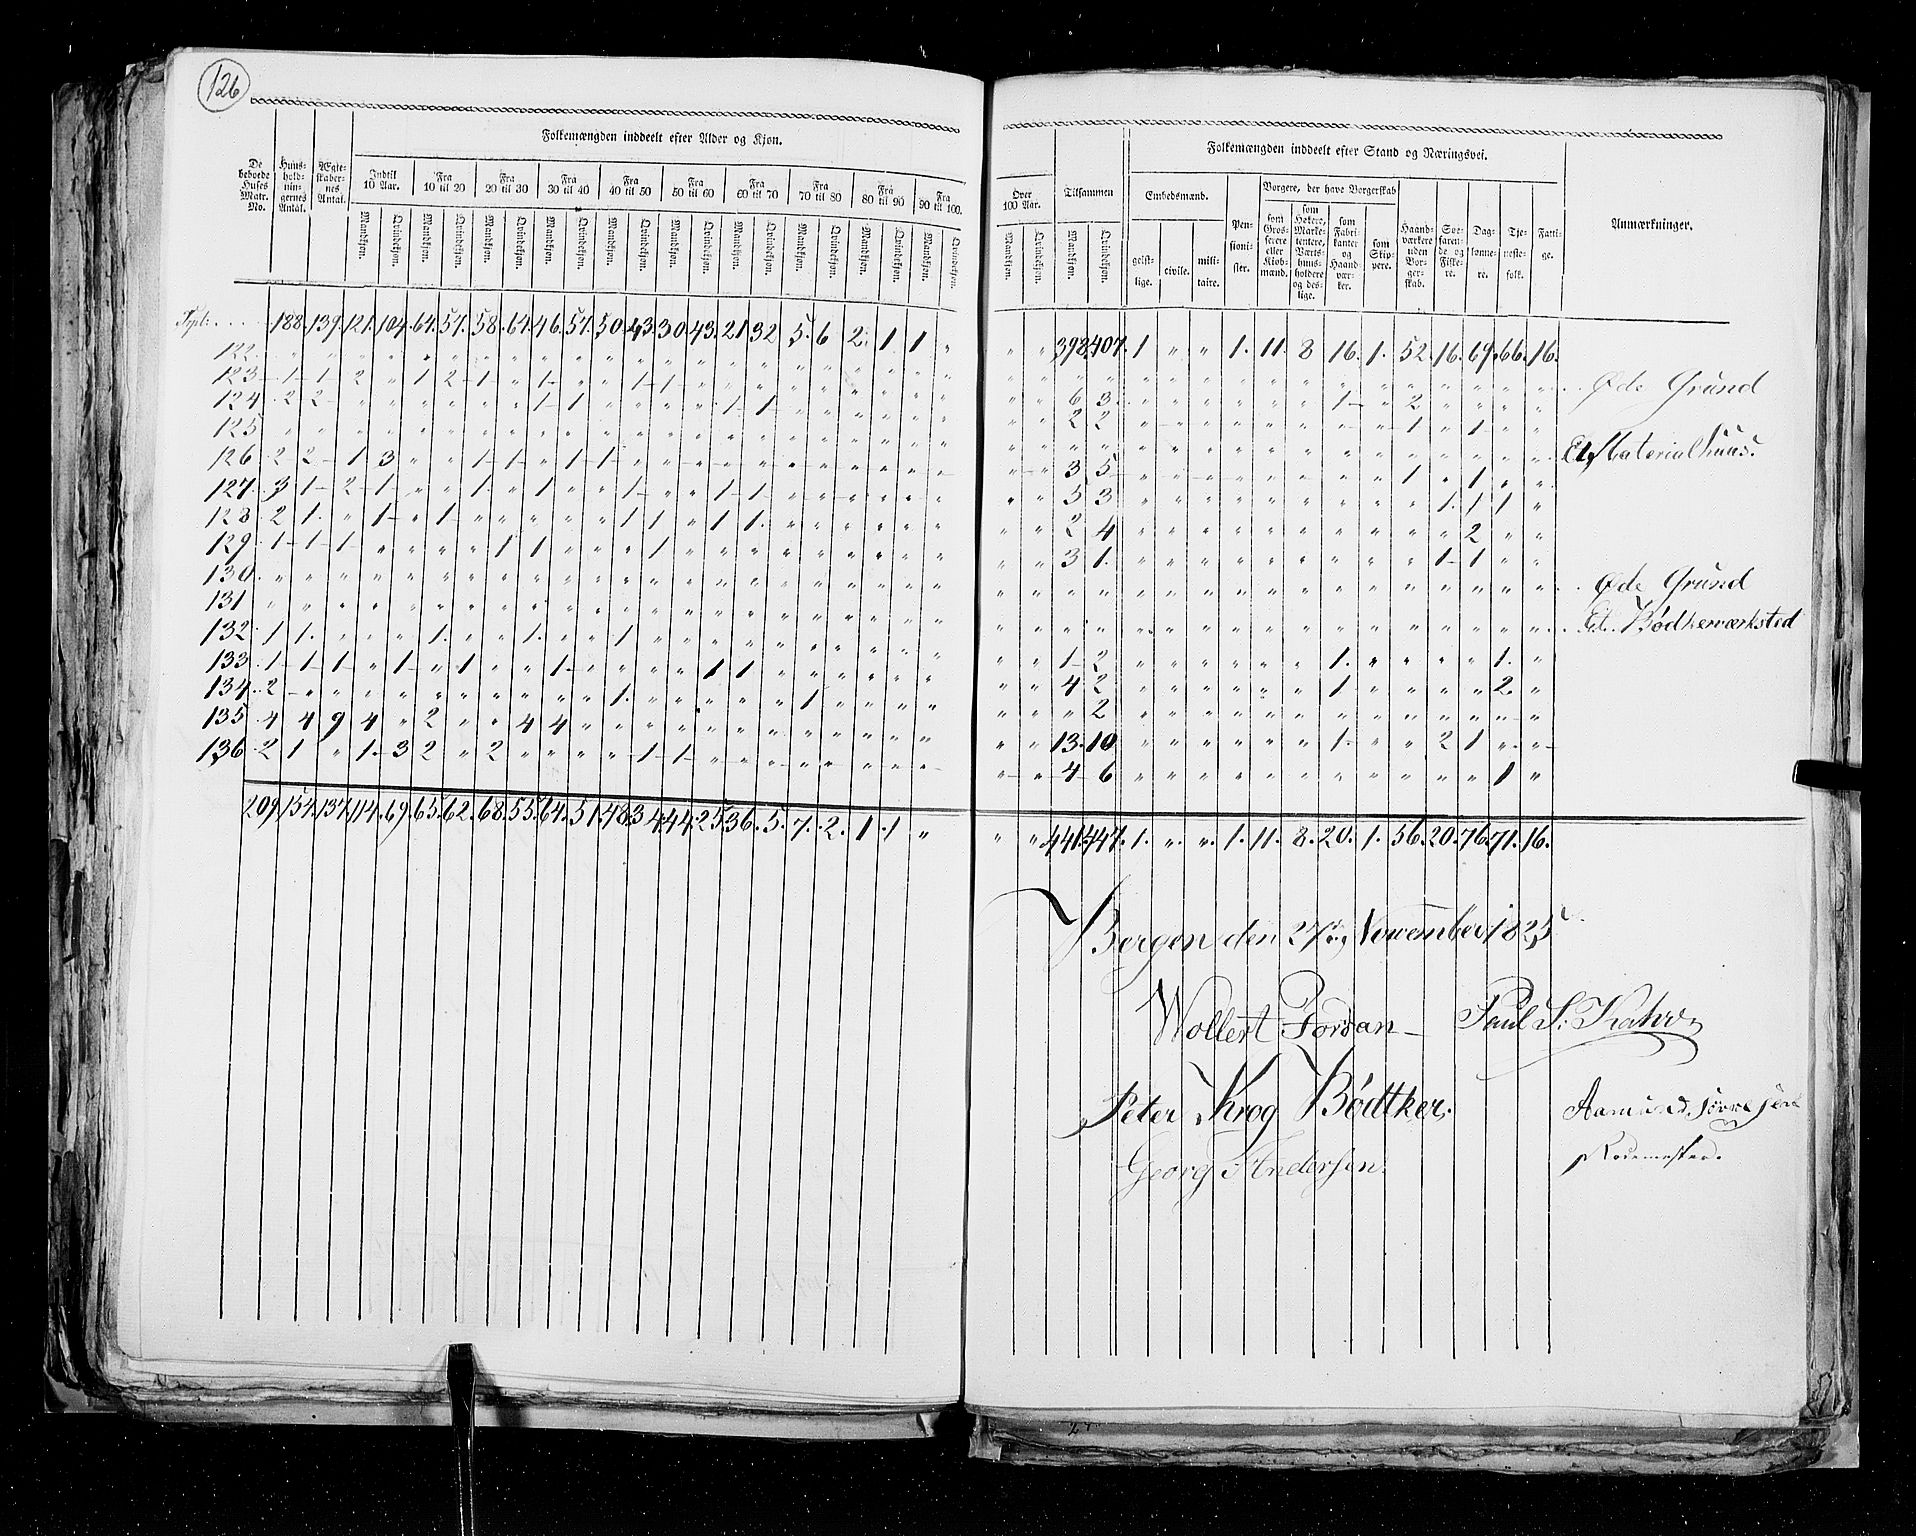 126
Folkemængden inddeelt efter Alder og Kjøn.
De beboede Huses Matr. No.
Huus-hold-nin-gernes Antal.
Ægte-skaber-nes Antal.
Indtil 10 Aar. Fra 10 til 20 Fra 20 til 30 Fra 30 til 40 Fra 40 til 50 Fra 50 til 60 Fra 60 til 70 Fra 70 til 80 Fra 80 til 90 Fra 90 til 100.
Mandkjøn. Qvindekjøn. Mandkjøn. Qvindekjøn. Mandkjøn. Qvindekjøn. Mandkjøn. Qvindekjøn. Mandkjøn. Qvindekjøn. Mandkjøn. Qvindekjøn. Mandkjøn. Qvindekjøn. Mandkjøn. Qvindekjøn. Mandkjøn. Qvindekjøn. Mandkjøn. Qvindekjøn.
188. 139. 121. 104. 64. 57. 58. 61. 46. 57. 50. 43. 30. 43. 21. 32 5. 6 2. 1 1 "
122.
123 1 1 2 " 1 2 1 " 1 " " 1 1
124 2 2 " " " " " " 1 1 " " " " 1 1
125
126 2 2 1 3 " " 1 1 " 1 1
127. 3 1 2 1 " " 1. " 1 " " 1 " " 1 1
128 2 1. " 1 " 1 " " " " " 1 1 " 1 1.
129 1 1 1 " " " " 1 1 " " " 1
130.
131
132 1 1. " " " 1. " " 1. " " 1
133 1 1 1 " 1 " 1 " " 1 " " " " 1 1
134 2 " " " " " " " " " " 1. " " " " " 1
135 4 4 9 4 " 2 " " 4 4
136 2 1 " 1. 3 2 " 2 " " " " 1 1
209. 154. 137. 114. 69. 65. 62. 68. 55. 64. 51. 48. 34. 44. 25. 36. 5. 7. 2. 1 1 "
Over 100 Aar.
Tilsammen
Folkemængden inddeelt efter Stand og Næringsvei.
Anmærkninger.
Mandkjøn. Qvindekjøn. Mandkjøn. Qvindekjøn.
Embedsmænd.
geistlige. civile. militaire.
Pensionister.
Borgere, der have Borgerskab
som Grosserere eller Kiøbmænd.
som Høkere, Marketentere, Værtshuusholdere og deslige.
som Fabrikanter og Haandværker.
som Skippere.
Haandværkere uden Borgerskab.
Søefarende og Fiskere.
Daglønnere.
Tjenestefolk.
Fattige.
" " 398. 407. 1 " " 1. 11. 8 16. 1. 52. 16. 69. 66. 16.
Øde Grund
" " 6 3. " " " " " " 1 " 2
" " 2 2 " " " " " " " " 1 " 1
Et Materialhuus.
" " 3 5 " " " " " " " " 1 " 1
" " 5 3 " " " " " " " " " 1. 1 1 "
" " 2 4 " " " " " " " " " " 2 " "
" " 3 1. " " " " " " " " " 1 1 " "
Øde Grund
Et Bødkerværksted
" " 1 2 " " " " " " 1. " " " " 1. "
" " 4 2 " " " " " " 1 " " " " 2. "
" " " 2
" " 13. 10 " " " " " " 1. " " 2 1 " "
" " 4 6 " " " " " " " " " " " 1 "
" " 441. 447. 1. " " 1. 11. 8. 20. 1. 56. 20. 76. 71. 16.
Bergen den 27 November 1825
Wollert Forsan Paul S:
Peter Krog Bødtker.
Georg Andersen.
Aamund
Rodemester.